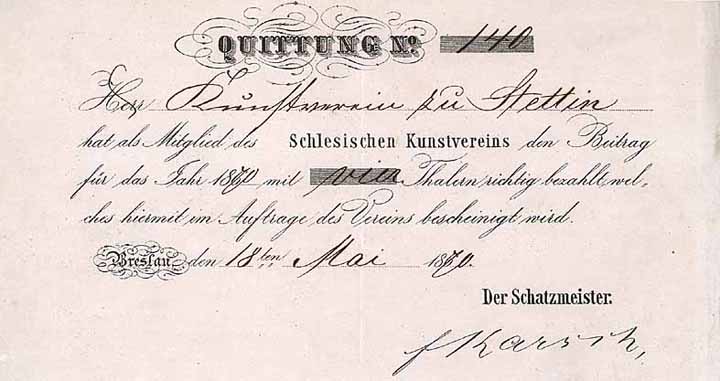 QUITTUNG No. 140
Herr Kunstverein zu Stettin
hat als Mitglied des Schlesischen Kunstvereins den Beitrag
für das Jahr 1870 mit vier Thalern richtig bezahlt, wel-
ches hiermit im Auftrage des Vereins bescheinigt wird.
Breslau, den 18ten Mai 1870.
Der Schatzmeister.
F Karsch,